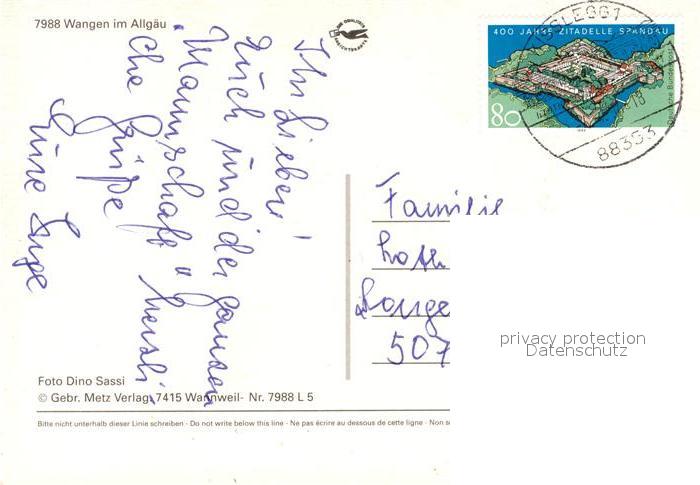 7988 Wangen im Allgäu
400 JAHRE ZITADELLE SPANDAU
Deutsche Bundespost
80
88353
Ihr Lieben!
Euch und der ganzen
Mannschaft u herzli-
che Grüße
Eure Inge
Familie
Loth
Lange
507
privacy protection
Datenschutz
Foto Dino Sassi
© Gebr. Metz Verlag, 7415 Wannweil - Nr. 7988 L 5
Bitte nicht unterhalb dieser Linie schreiben · Do not write below this line · Ne pas écrire au dessous de cette ligne · Non